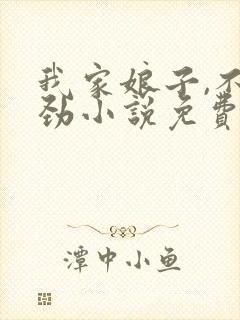 我家娘子,不
劲小説免費
潭中小鱼